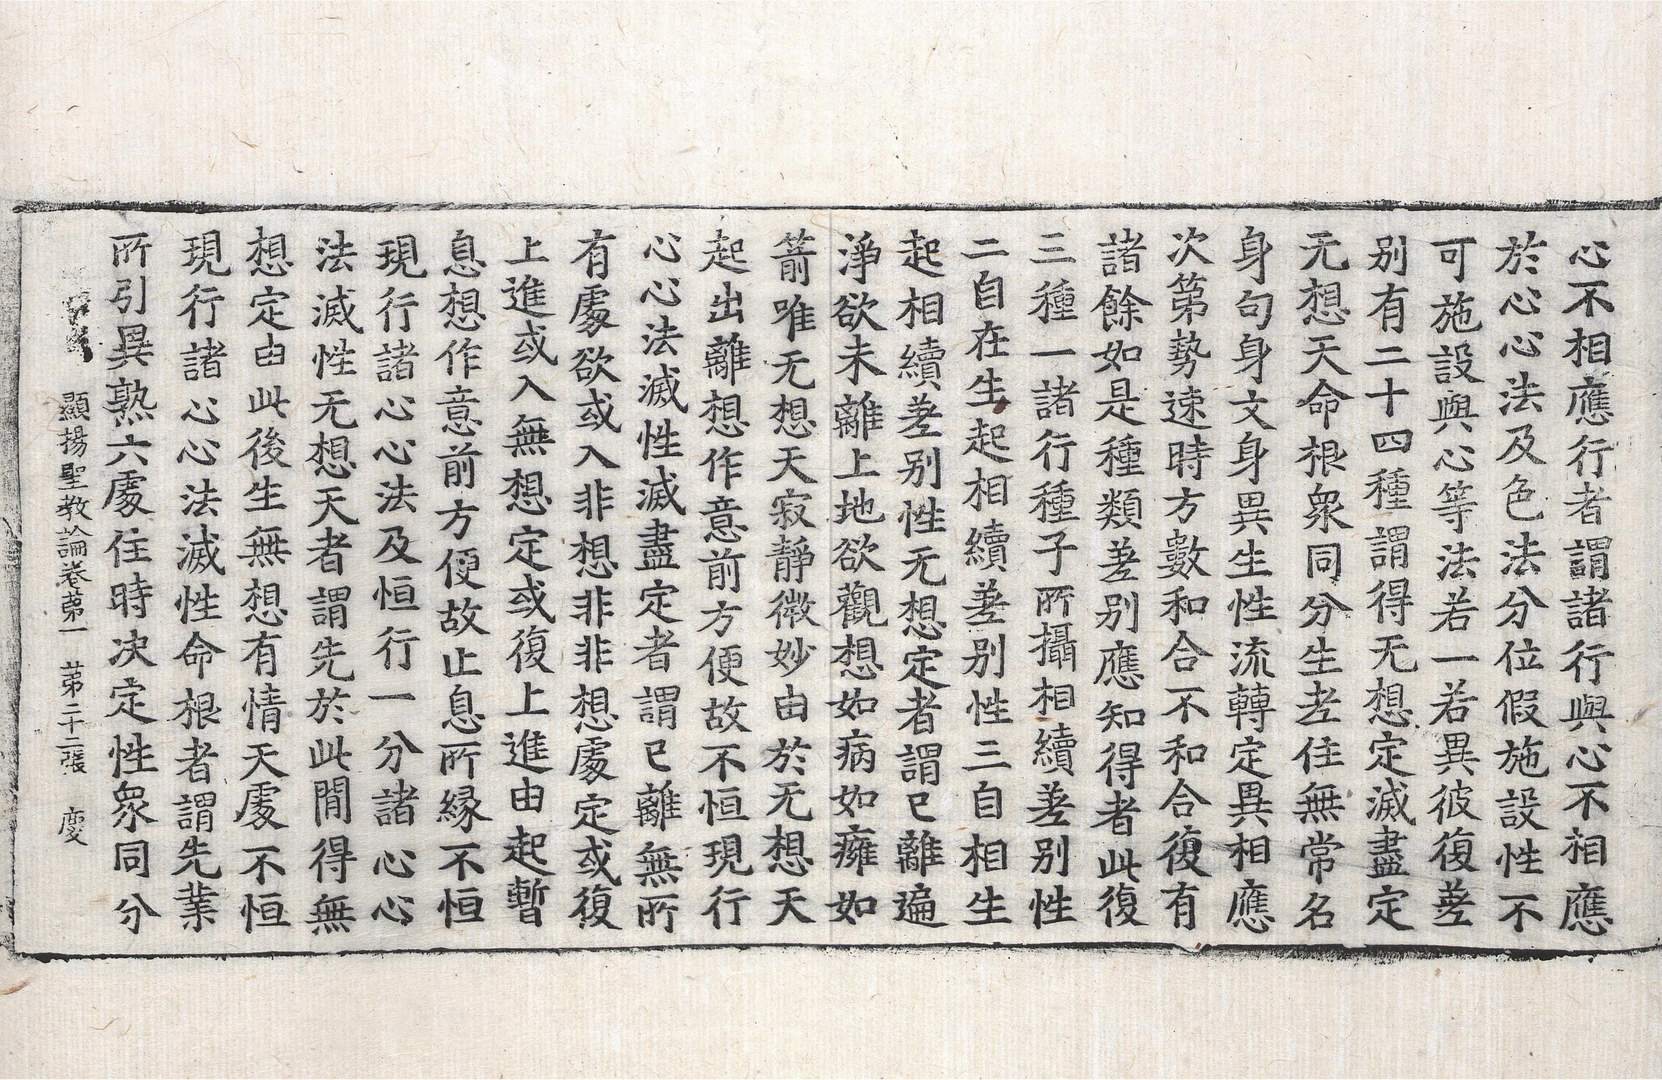 心不相應行者謂諸行與心不相應
於心心法及色法分位假施設性不
可施設與心等法若一若異彼復差
别有二十四種謂得无想定滅盡定
无想天命根衆同分生老住無常名
身句身文身異生性流轉定異相應
次第勢速時方數和合不和合復有
諸餘如是種類差别應知得者此復
三種一諸行種子所攝相續差别性
二自在生起相續差别性三自相生
起相續差别性无想定者謂已離遍
淨欲未離上地欲觀想如病如癰如
箭唯无想天寂靜微妙由於无想天
起出離想作意前方便故不恒現行
心心法滅性滅盡定者謂已離無所
有處欲或入非想非非想處定或復
上進或入無想定或復上進由起暫
息想作意前方便故止息所緣不恒
現行諸心心法及恒行一分諸心心
法滅性无想天者謂先於此間得無
想定由此後生無想有情天處不恒
現行諸心心法滅性命根者謂先業
所引異熟六處住時决定性衆同分
顯揚聖教論卷第一 第二十二張 慶